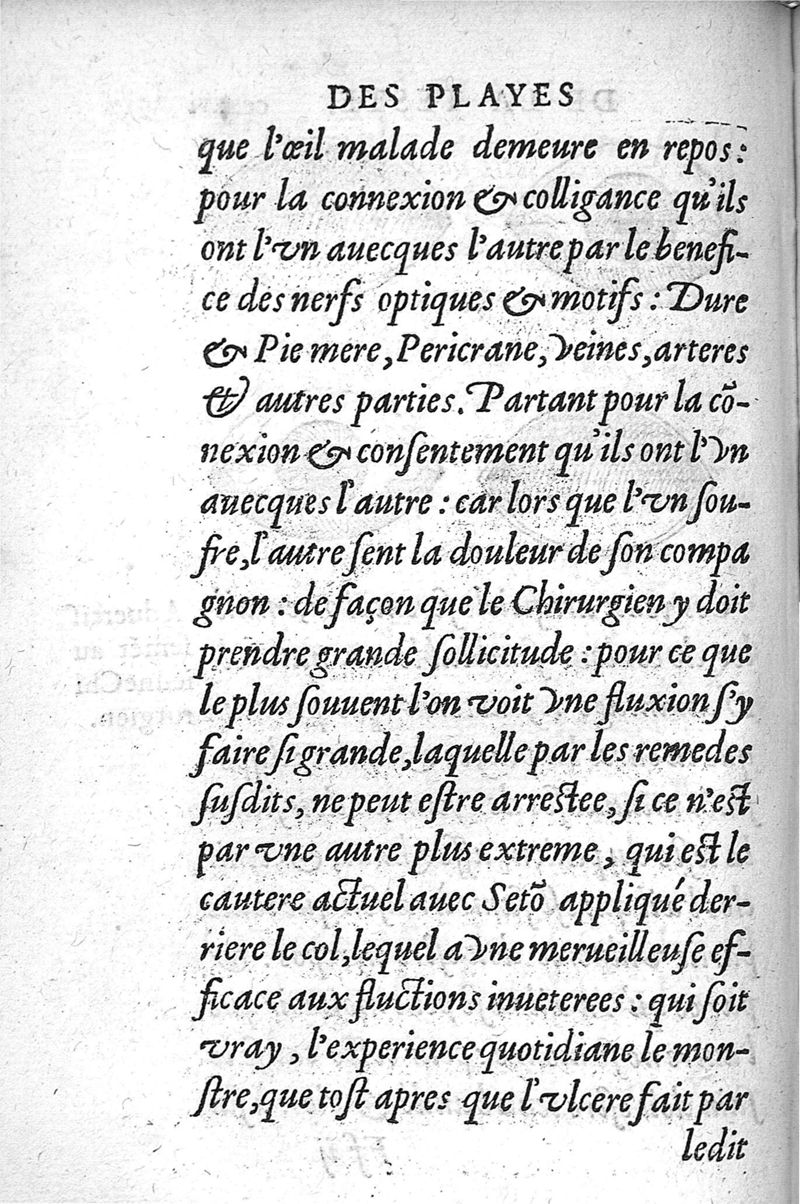 DES PLAYES
que l'œil malade demeure en repos:
pour la connexion & colligance qu'ils
ont l'vn auecques l'autre par le benefi-
ce des nerfs optiques & motifs : Dure
& Pie mere, Pericrane, veines, arteres
& autres parties. Partant pour la cõ-
nexion & conſentement qu'ils ont l'vn
auecques l'autre : car lors que l'vn ſou-
fre, l'autre ſent la douleur de ſon compa
gnon : de façon que le Chirurgien y doit
prendre grande ſollicitude : pour ce que
le plus ſouuent l'on voit vne fluxion s'y
faire ſi grande, laquelle par les remedes
ſuſdits, ne peut eſtre arreſtee, ſi ce n'eſt
par vne autre plus extreme, qui eſt le
cautere actuel auec Setõ appliqué der-
riere le col, lequel a vne merueilleuſe ef-
ficace aux fluctions inueterees : qui ſoit
vray, l'experience quotidiane le mon-
ſtre, que toſt apres que l'vlcere fait par
ledit